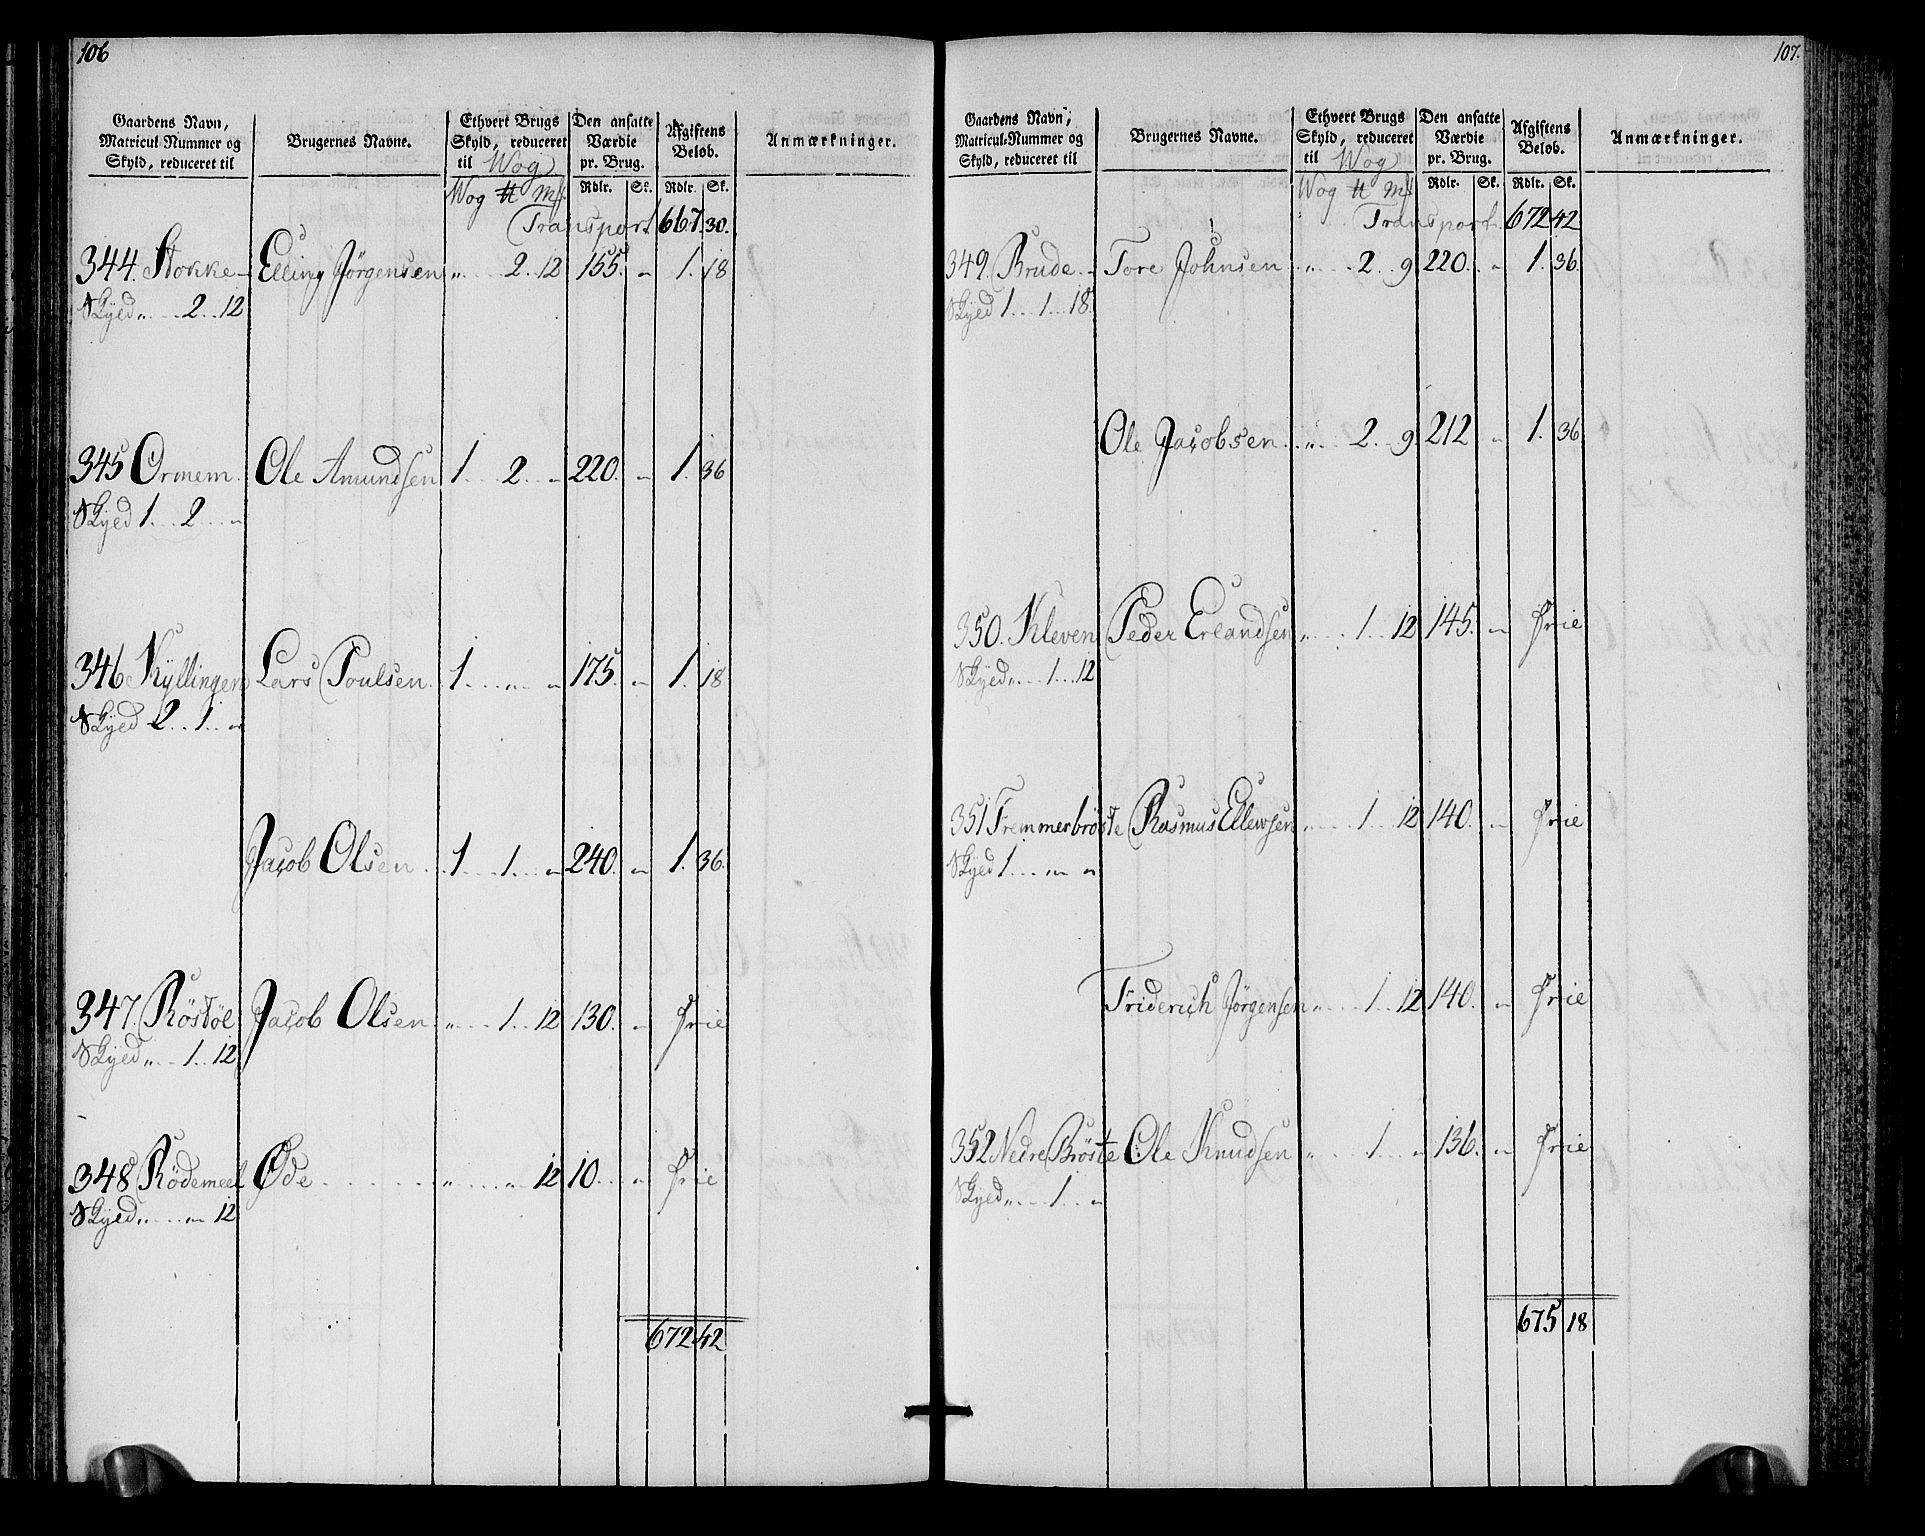 106
Gaardens Navn, Matricul Nummer og Skyld, reduceret til
Brugernes Navne.
Ethvert Brugs Skyld, reduceret til Wog
Den ansatte Værdie pr. Brug.
Afgiftens Beløb.
Anmærkninger.
Wog ℔ Mk Rdlr. Sk. Rdlr. Sk.
Transport 667. 30.
344. Stokke Elling Jørgensen „ 2. 12 155. „ 1. 18
Skyed „ 2. 12
345 Ormem Ole Amundsen 1. 2. „ 220. „ 1. 36
Skyed 1. 2. „
346 Kyllingen Lars Poulsen 1. „ „ 175. „ 1. 18
Skyed 2. 1. „
Jacob Olsen 1. 1. „ 240. „ 1. 36.
347. Röstøl Jacob Olsen „ 1. 12 130. „ Frie
Skyed „ 1. 12
348 Rödemeel Øde „ „ 12 10. „ Frie
Skyed „ „ 12
672 42
107.
Gaardens Navn, Matricul-Nummer og Skyld, reduceret til
Brugernes Navne.
Ethvert Brugs Skyld, reduceret til Wog
Den ansatte Værdie pr. Brug.
Afgiftens Beløb.
Anmærkninger.
Wog ℔ Mk Rdlr. Sk. Rdlr. Sk.
Transport 672 42
349. Brude Tore Johnsen „ 2. 9 220. „ 1. 36.
Skyed 1. 1. 18.
Ole Jacobsen „ 2. 9. 212 „ 1. 36
350. Kleven Peder Erlandsen „ 1. 12 145. „ Frie
Skyed „ 1. 12
351 Fremmerbrøste Rasmus Ellevsen „ 1. 12 140. „ Frie
Skyed 1. „ „
Friderich Jørgensen „ 1. 12 140. „ Frie
352 Nedre Brøste Ole Knudsen „ 1. „ 136. „ Frie
Skyed „ 1. „
675 18